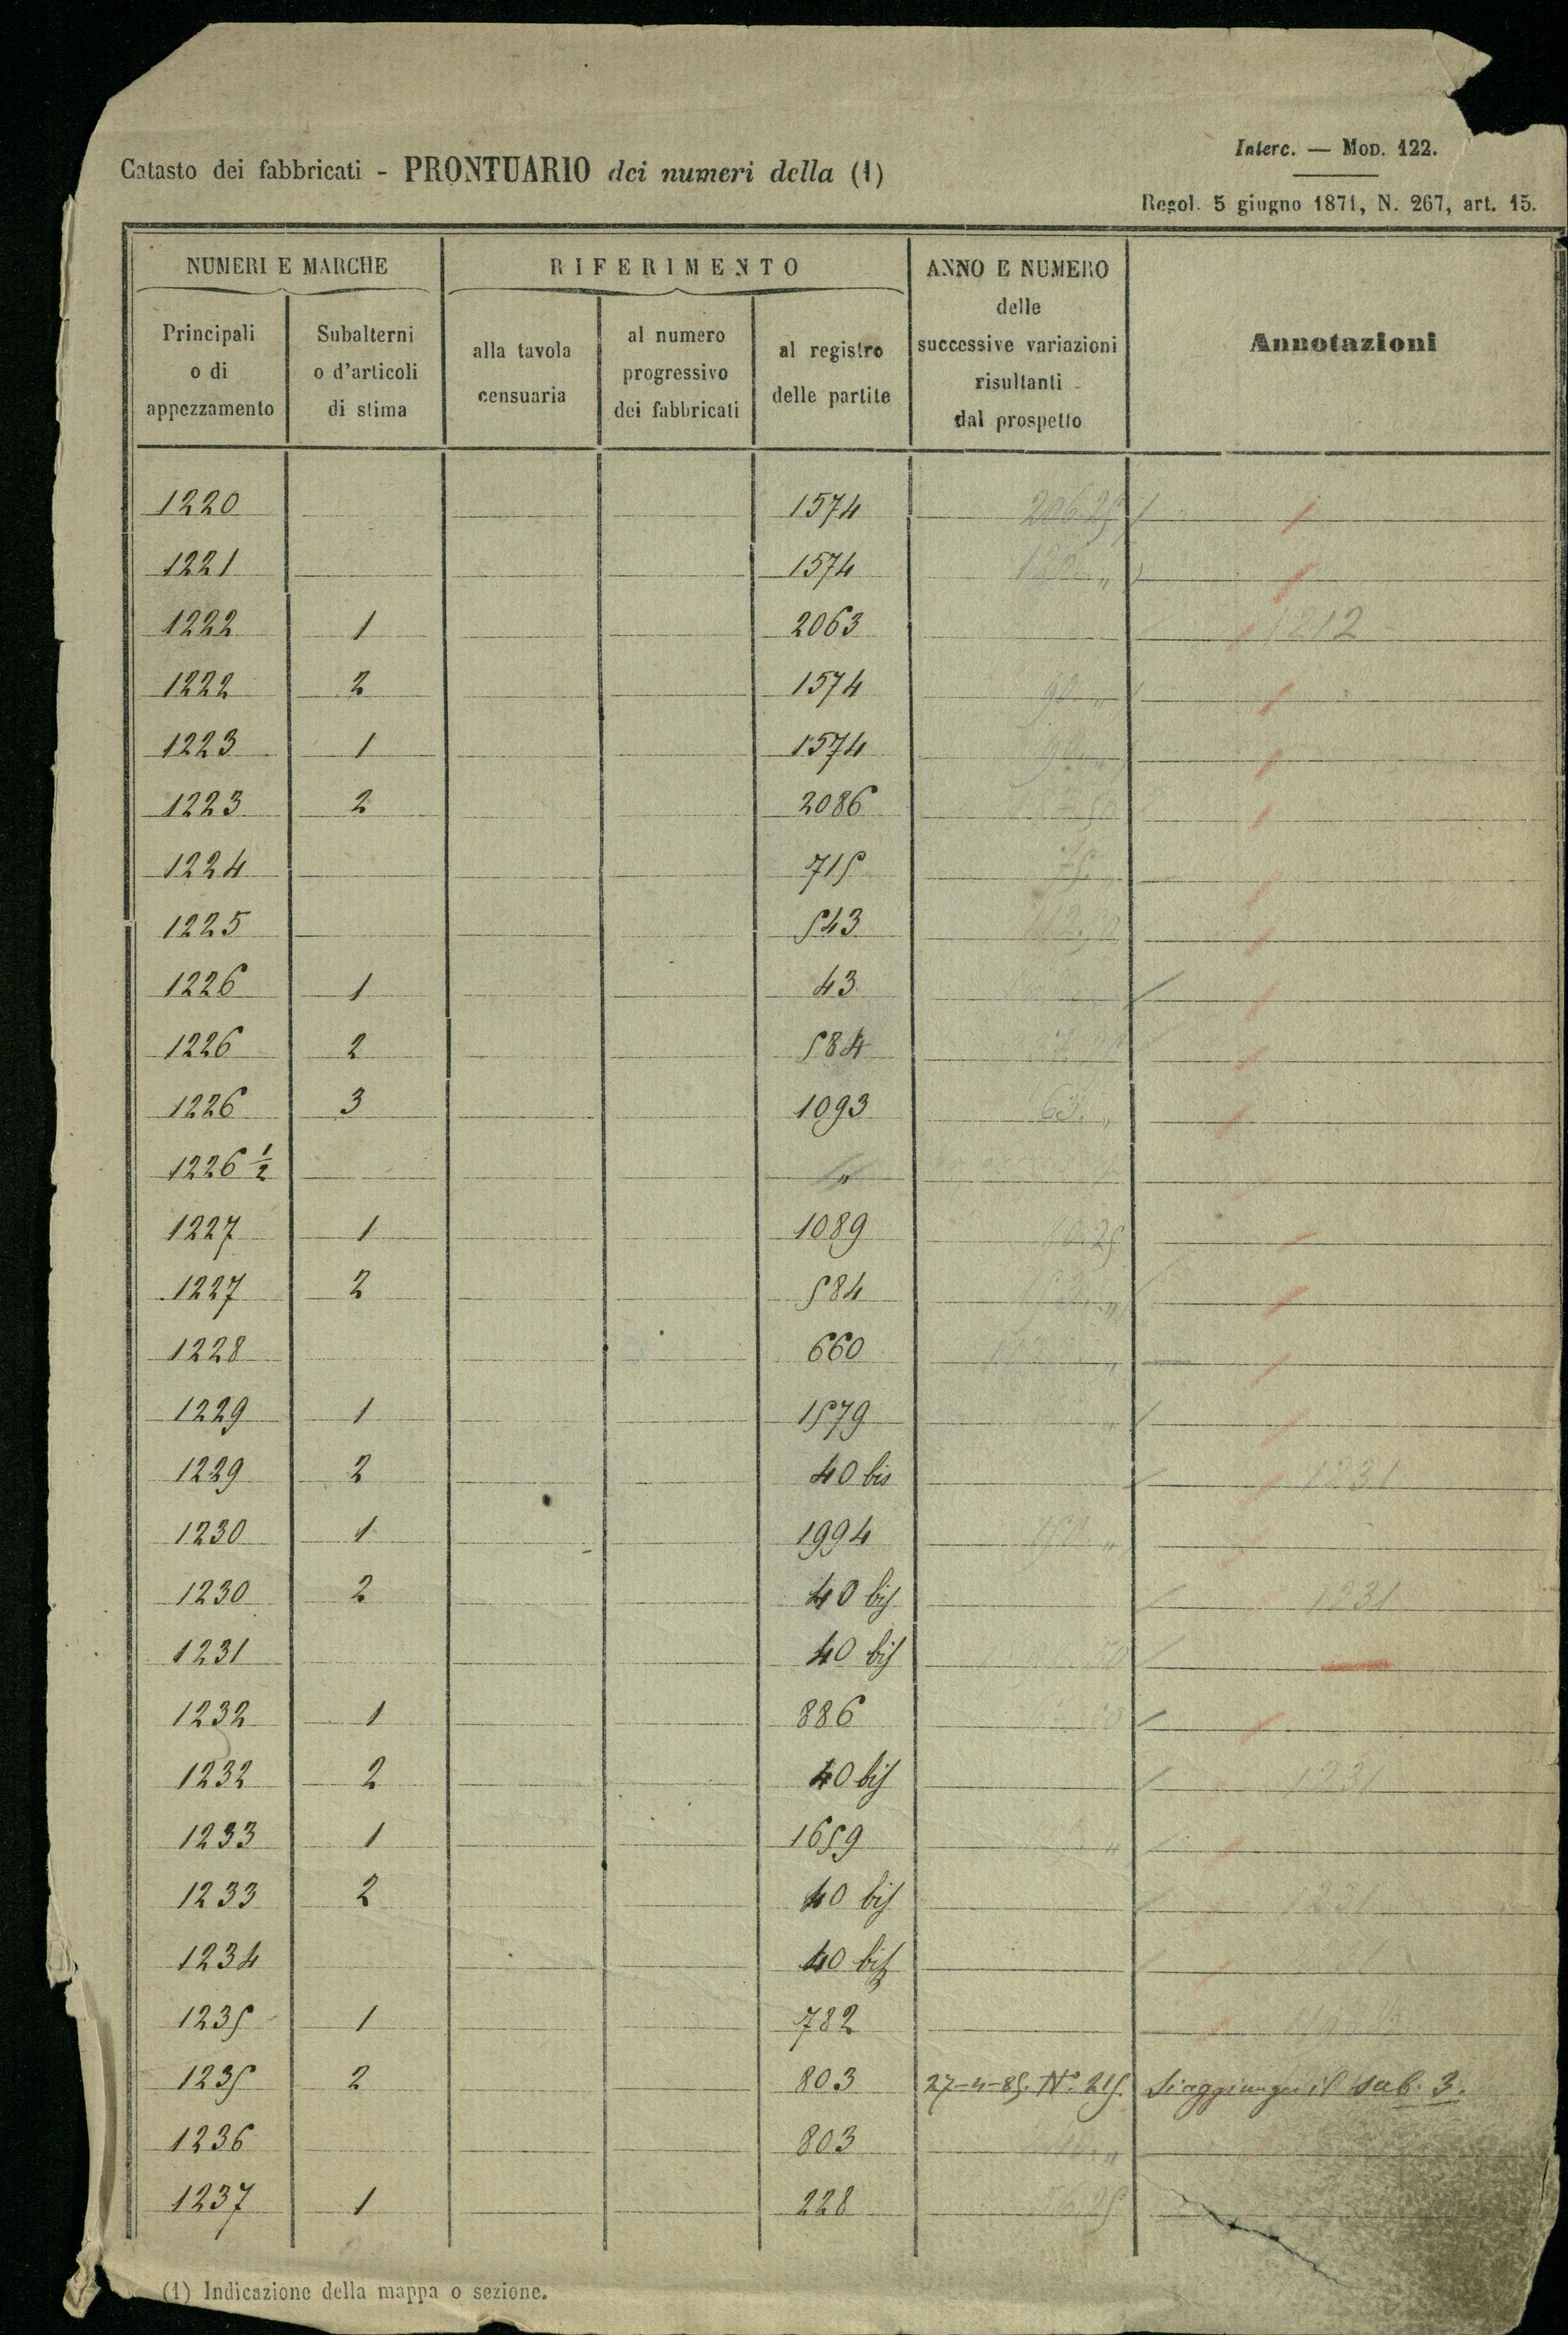 Interc. — Mod. 122.
Catasto dei fabbricati - PRONTUARIO dei numeri della (1)
Regol. 5 giugno 1871, N. 267, art. 15.
NUMERI E MARCHE RIFERIMENTO ANNO E NUMERO delle successive variazioni risultanti dal prospetto Annotazioni
Principali o di appezzamento Subalterni o d'articoli di stima alla tavola censuaria al numero progressivo dei fabbricati al registro delle partite
1220 1574 206.25
1221 1574
1222 1 2063 1212
1222 2 1574 90 "
1223 1 1574 90 "
1223 2 2086
1224 715 75 "
1225 543 112.50
1226 1 43
1226 2 584
1226 3 1093 63. "
1226 ½ "
1227 1 1089
1227 2 584
1228 660
1229 1 1579 "
1229 2 40 bis 1231
1230 1 1994 150 "
1230 2 40 bis 1231
1231 40 bis
1232 1 886
1232 2 40 bis 1231
1233 1 1659 "
1233 2 40 bis 1231
1234 40 bis
1235 1 782
1235 2 803 27-4-85. N.º 215. Si aggiunge il sub. 3.
1236 803
1237 1 228
(1) Indicazione della mappa o sezione.